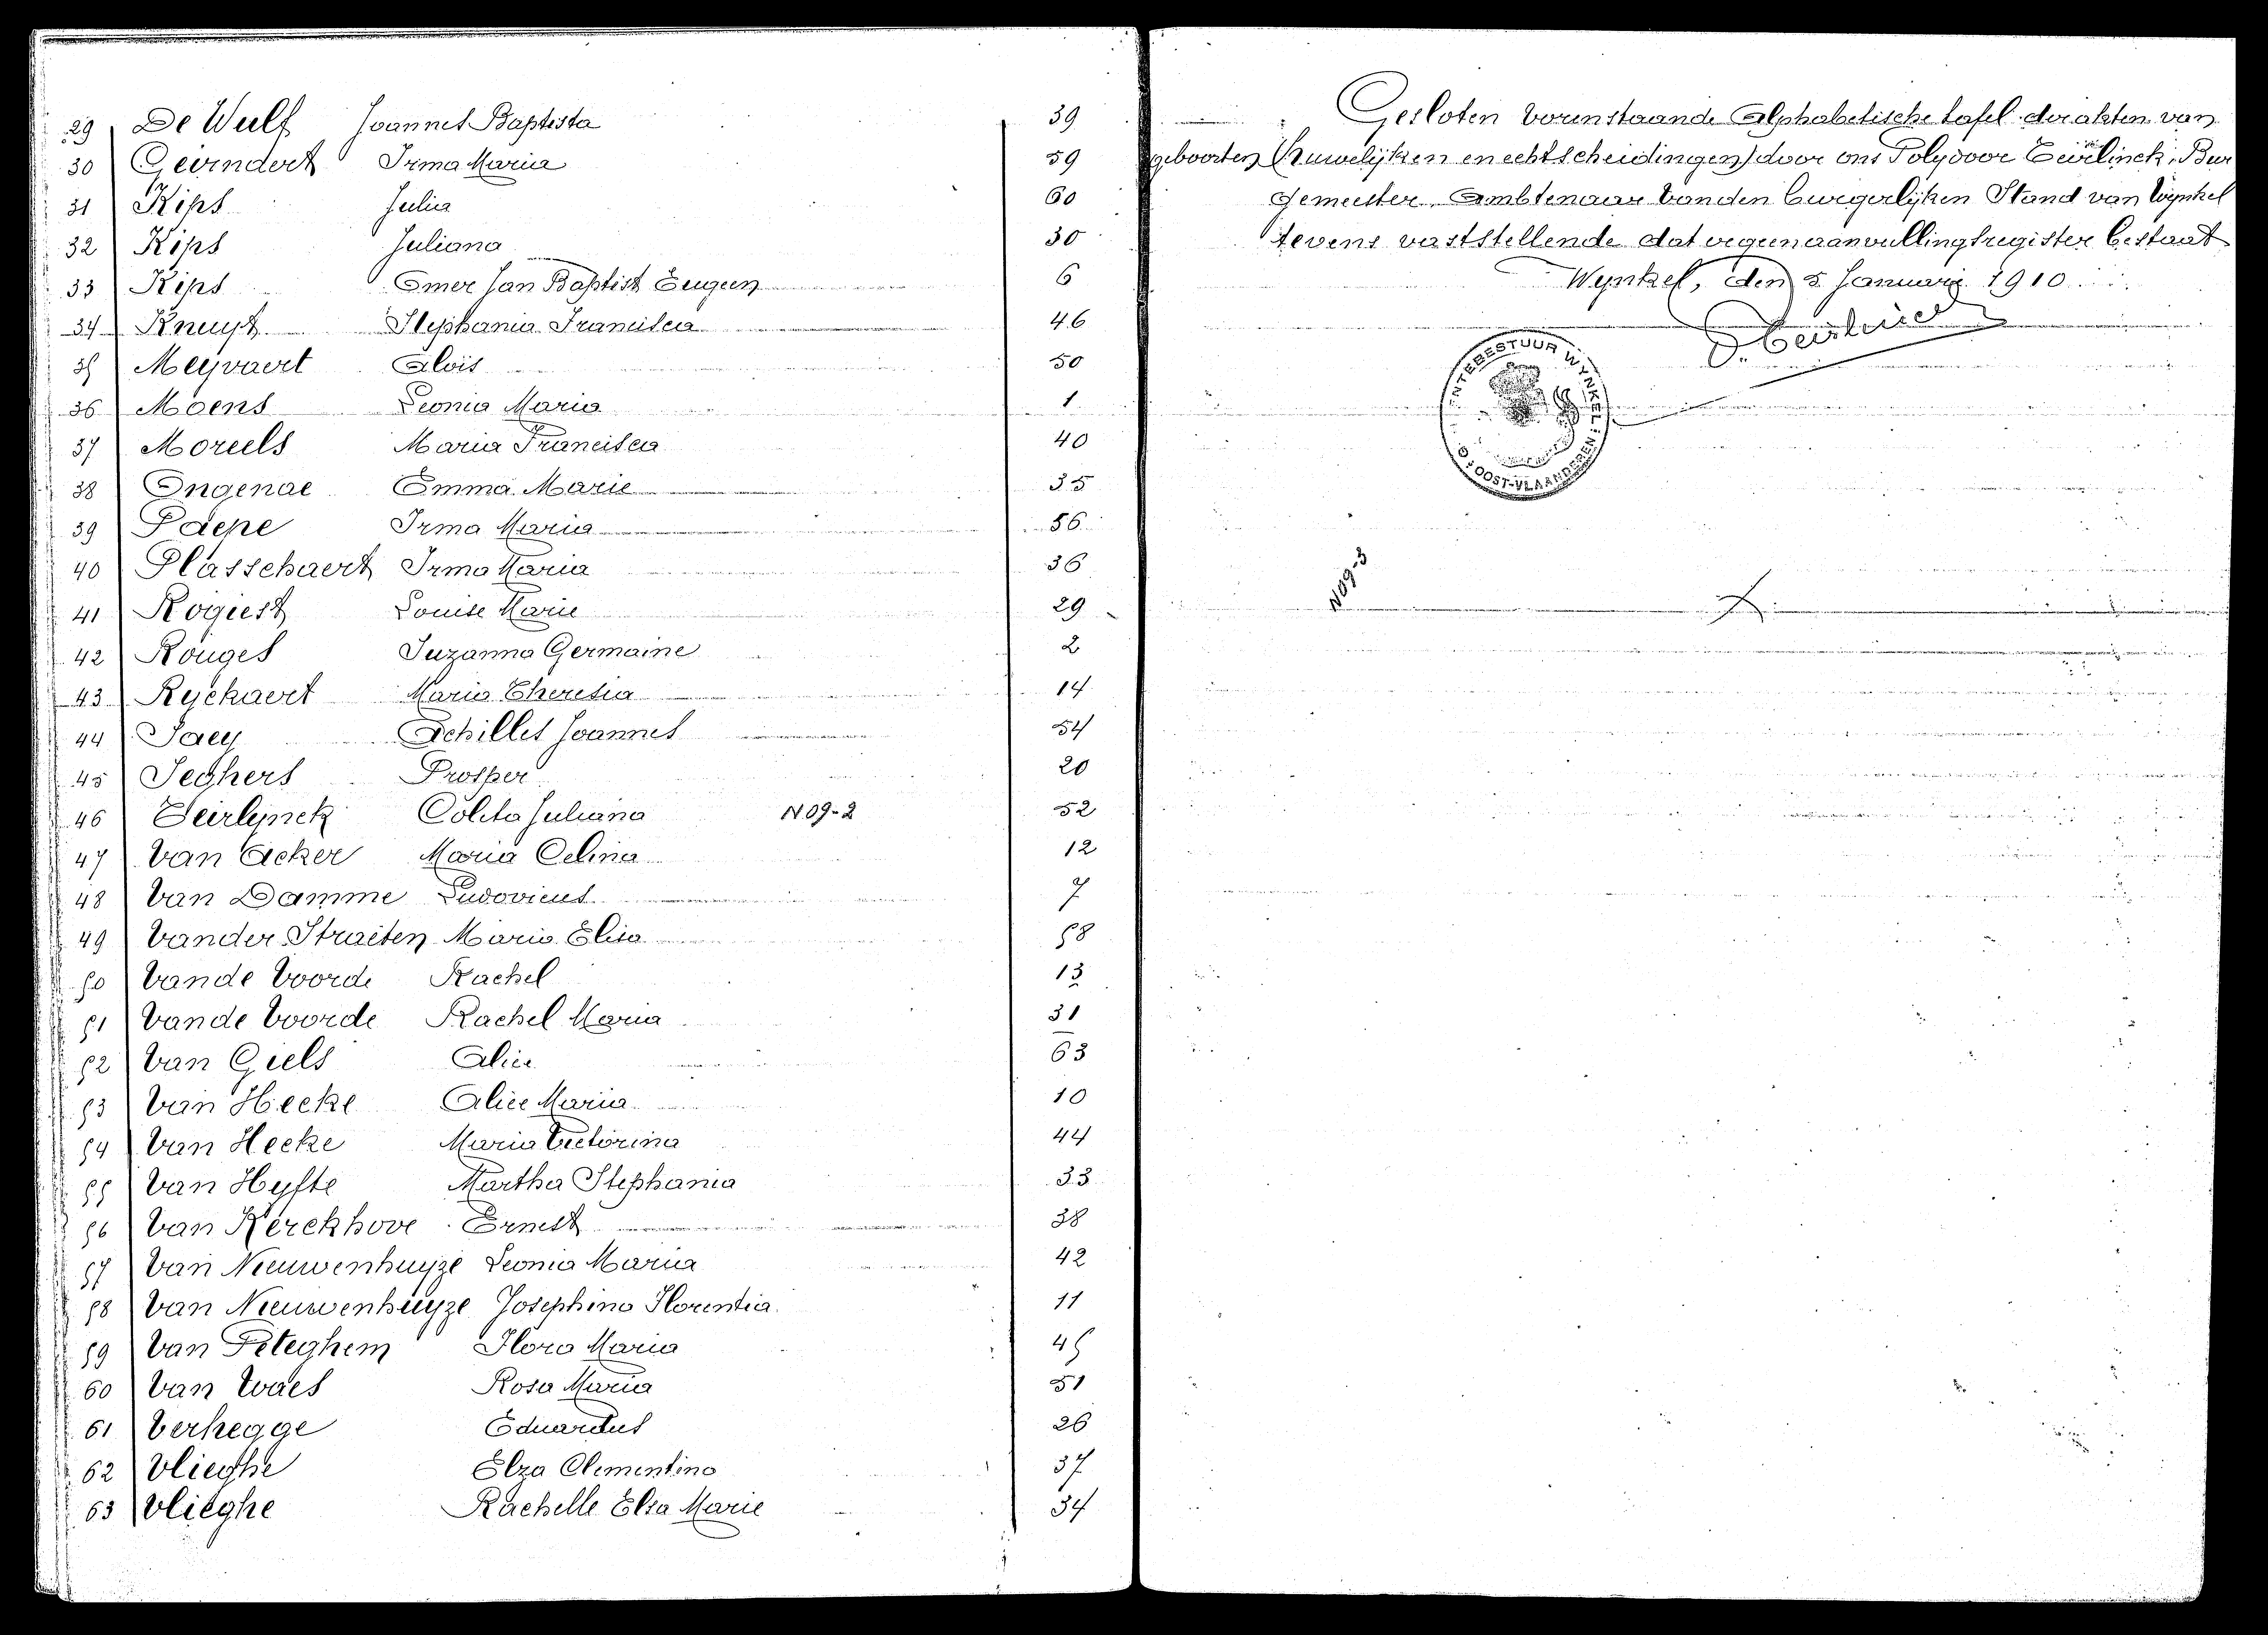 29 De Wulf Joannes Baptista 39
30 Geirnaert Irma Maria 59
31 Kips Julia 60
32 Kips Juliana 30
33 Kips Omer Jan Baptist Eugeen 6
34 Knuyt Stephania Francisca 46
35 Meyvaert Aloïs 50
36 Moens Leonia Maria 1
37 Moreels Maria Francisca 40
38 Ongenae Emma Marie 35
39 Paepe Irma Maria 56
40 Plasschaert Irma Maria 36
41 Rogiest Louise Marie 29
42 Rouges Suzanna Germaine 2
43 Ryckaert Maria Theresia 14
44 Saey Achilles Joannes 54
45 Seghers Prosper 20
46 Teirlynck Coleta Juliana N09-2 52
47 Van Acker Maria Celina 12
48 Van Damme Ludovicus 7
49 Vander Straeten Maria Elisa 58
50 Vande Voorde Rachel 13
51 Vande Voorde Rachel Maria 31
52 Van Giels Alice 63
53 Van Hecke Alice Maria 10
54 Van Hecke Maria Victorina 44
55 Van Hyfte Martha Stephania 33
56 Van Kerckhove Ernest 38
57 Van Nieuwenhuyze Leonia Maria 42
58 Van Nieuwenhuyze Josephina Florentia 11
59 Van Peteghem Flora Maria 45
60 Van Waes Rosa Maria 51
61 Verhegge Eduardus 26
62 Vlieghe Elza Clementina 37
63 Vlieghe Rachelle Elsa Marie 34
Gesloten voorenstaande Alphabetische tafel der akten van
geboorten (huwelijken en echtscheidingen) door ons Polydoor Bur
gemeester, Ambtenaar van den burgerlijken Stand van Wynkel
tevens vaststellende dat er geen aanvullingsregister bestaat
Wynkel, den 5 Januari 1910
NTEBESTUUR WYNKEL
OOST-VLAANDEREN
N09-3